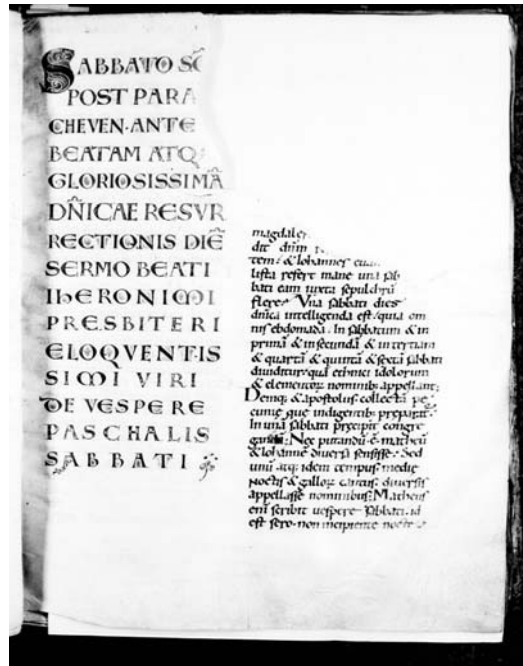 SABBATO SC̄
POST PARA
CHEVEN·ANTE
BEATAM ATQ:
GLORIOSISSIMĀ
DN̄ICAE RESVR
RECTIONIS DIĒ
SERMO BEATI
IhERONIMI
PRESBITERI
ELOQVENTIS
SIMI VIRI
DE VESPERE
PASCHALIS
SABBATI
magdale
dit dn̄m
tem; & Iohannes
lista refert mane una sab
bati eam iuxta sepulchrū
flere; Vna sabbati dies
dn̄ica intelligenda est; quia om
nis ebdomada. In sabbatum & in
primā & insecundā & in tertiam
& quartā & quintā & sextā sabbati
diuiditur; quā ethnici idolorum
& elementoꝝ nominib; appellant;
Deniq; & apostolus collectā pe
cunię que indigentib; preparat̄
In una sabbati precipit congre
Nec putandū ē matheū
& Iohannē diuersa sensisse; Sed
unū atq; idem tempus medię
noctis & galloꝝ cantus diuersis
appellasse nominibus; Matheus
enī scribit uespere sabbati. id
est sero. non incipiente nocte